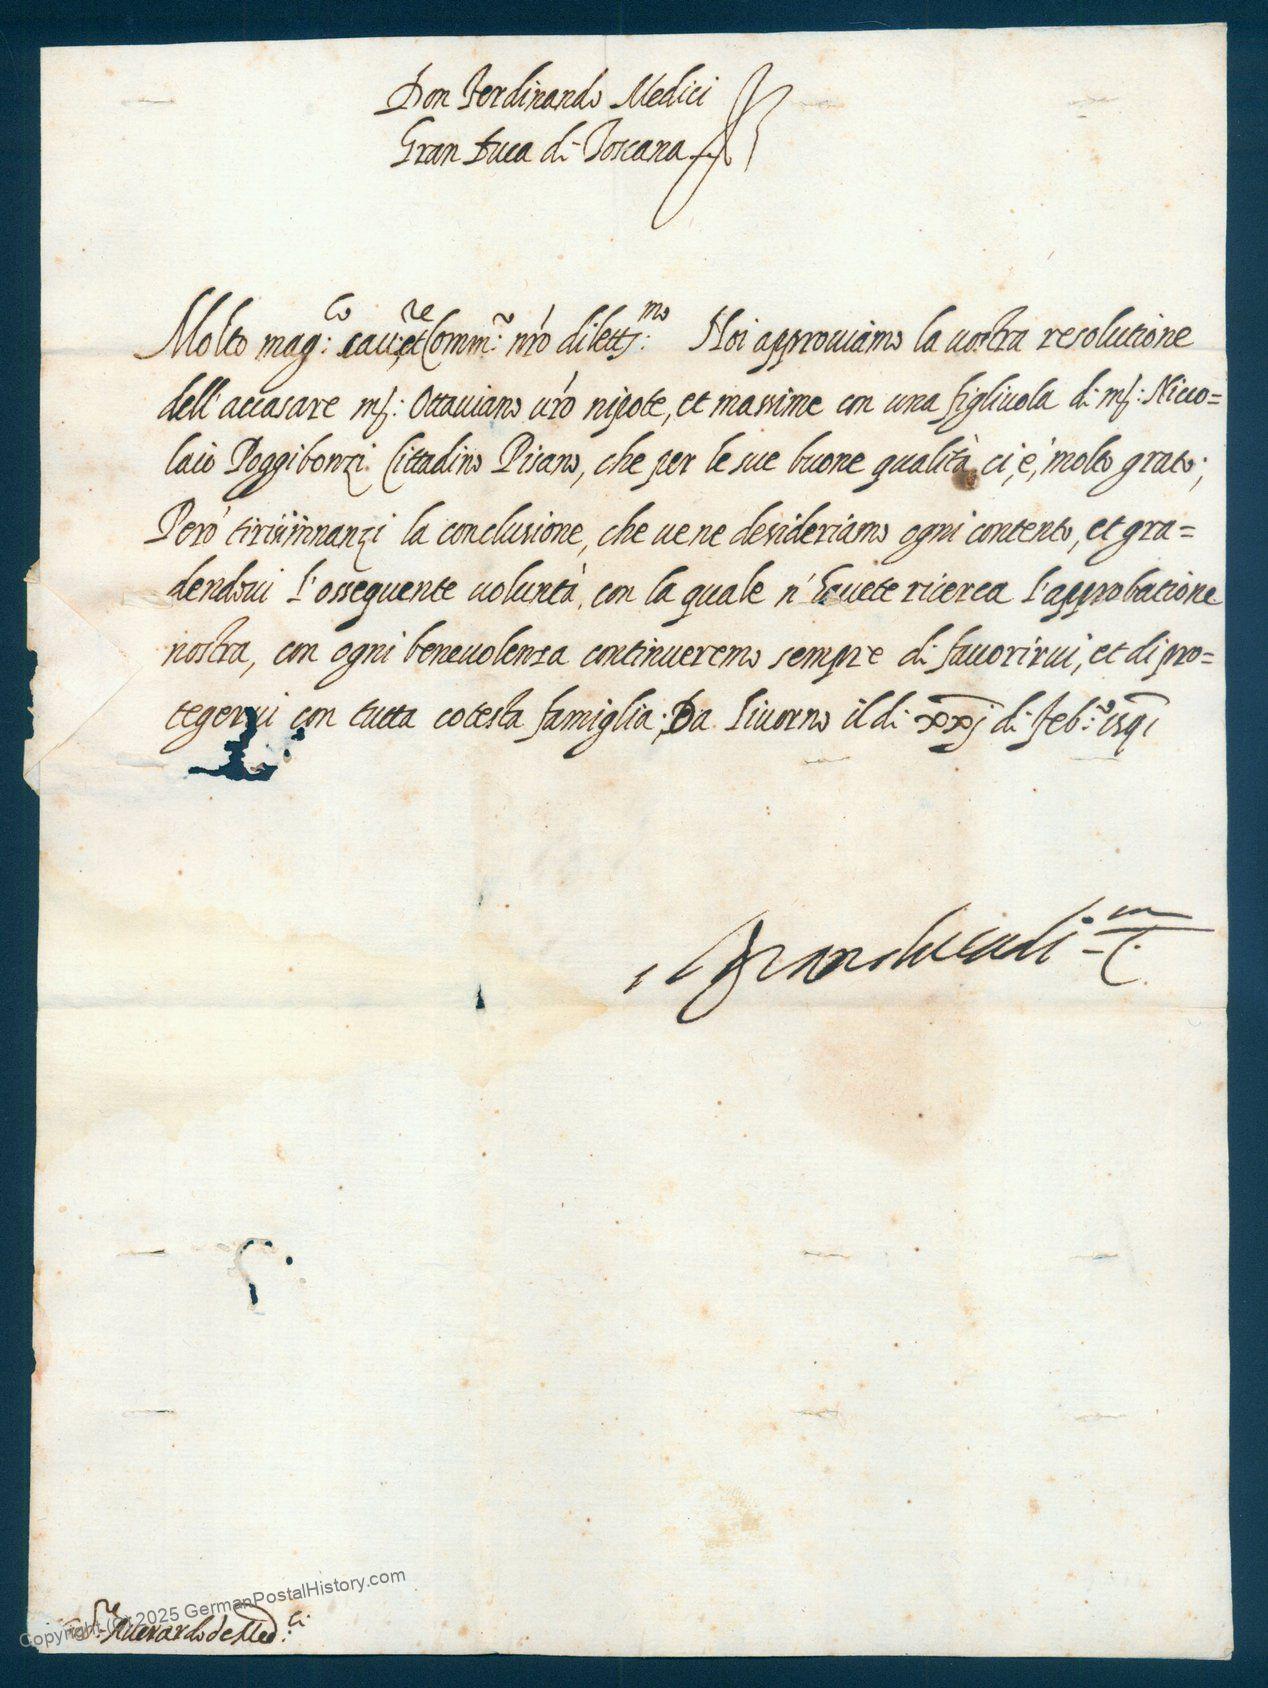 Don Ferdinando Medici
Gran Duca di Toscana
Molto mag:co cav:re et Comm:re nro dilett:mo Noi approviamo la vostra resolutione
dell'accasare mſ: Ottaviano vro nipote, et massime con una figliuola di mſ: Nicco=
laio Poggibonzi Cittadino Pisano, che per le sue buone qualità ci, è, molto grato;
Però tirisi innanzi la conclusione, che ve ne desideriamo ogni contento, et gra=
dendovi l'ossequente voluntà, con la quale n'havete ricerca l'approbatione
nostra, con ogni benevolenza continueremo sempre di favorirvi, et di pro=
tegervi con tutta cotesta famiglia; Da Livorno il di xxj di Feb:o
il Gran duca di T.
Averardo de Med:ci
Copyright (C) 2025 GermanPostalHistory.com